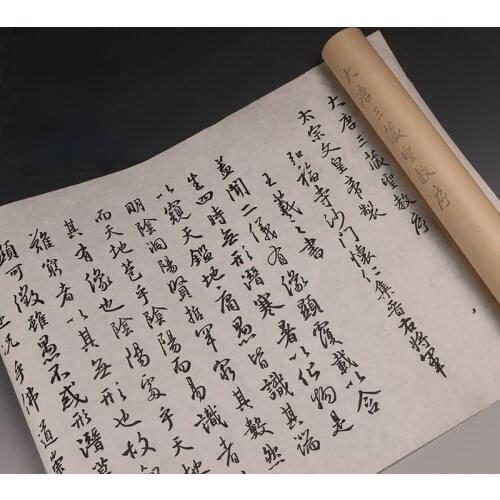 大唐三藏聖教序
大唐三藏聖教序
太宗文皇帝製
弘福寺沙門懷仁集晉右將軍
王羲之書
蓋聞二儀有像顯覆載以含
生四時無形潛寒暑以化物是
以窺天鑑地庸愚皆識其端
明陰洞陽賢哲罕窮其數然
而天地苞乎陰陽而易識者
其有像也陰陽處乎天地
難窮者以其無形也故知
顯可徵雖愚不惑形潛莫
況乎佛道崇